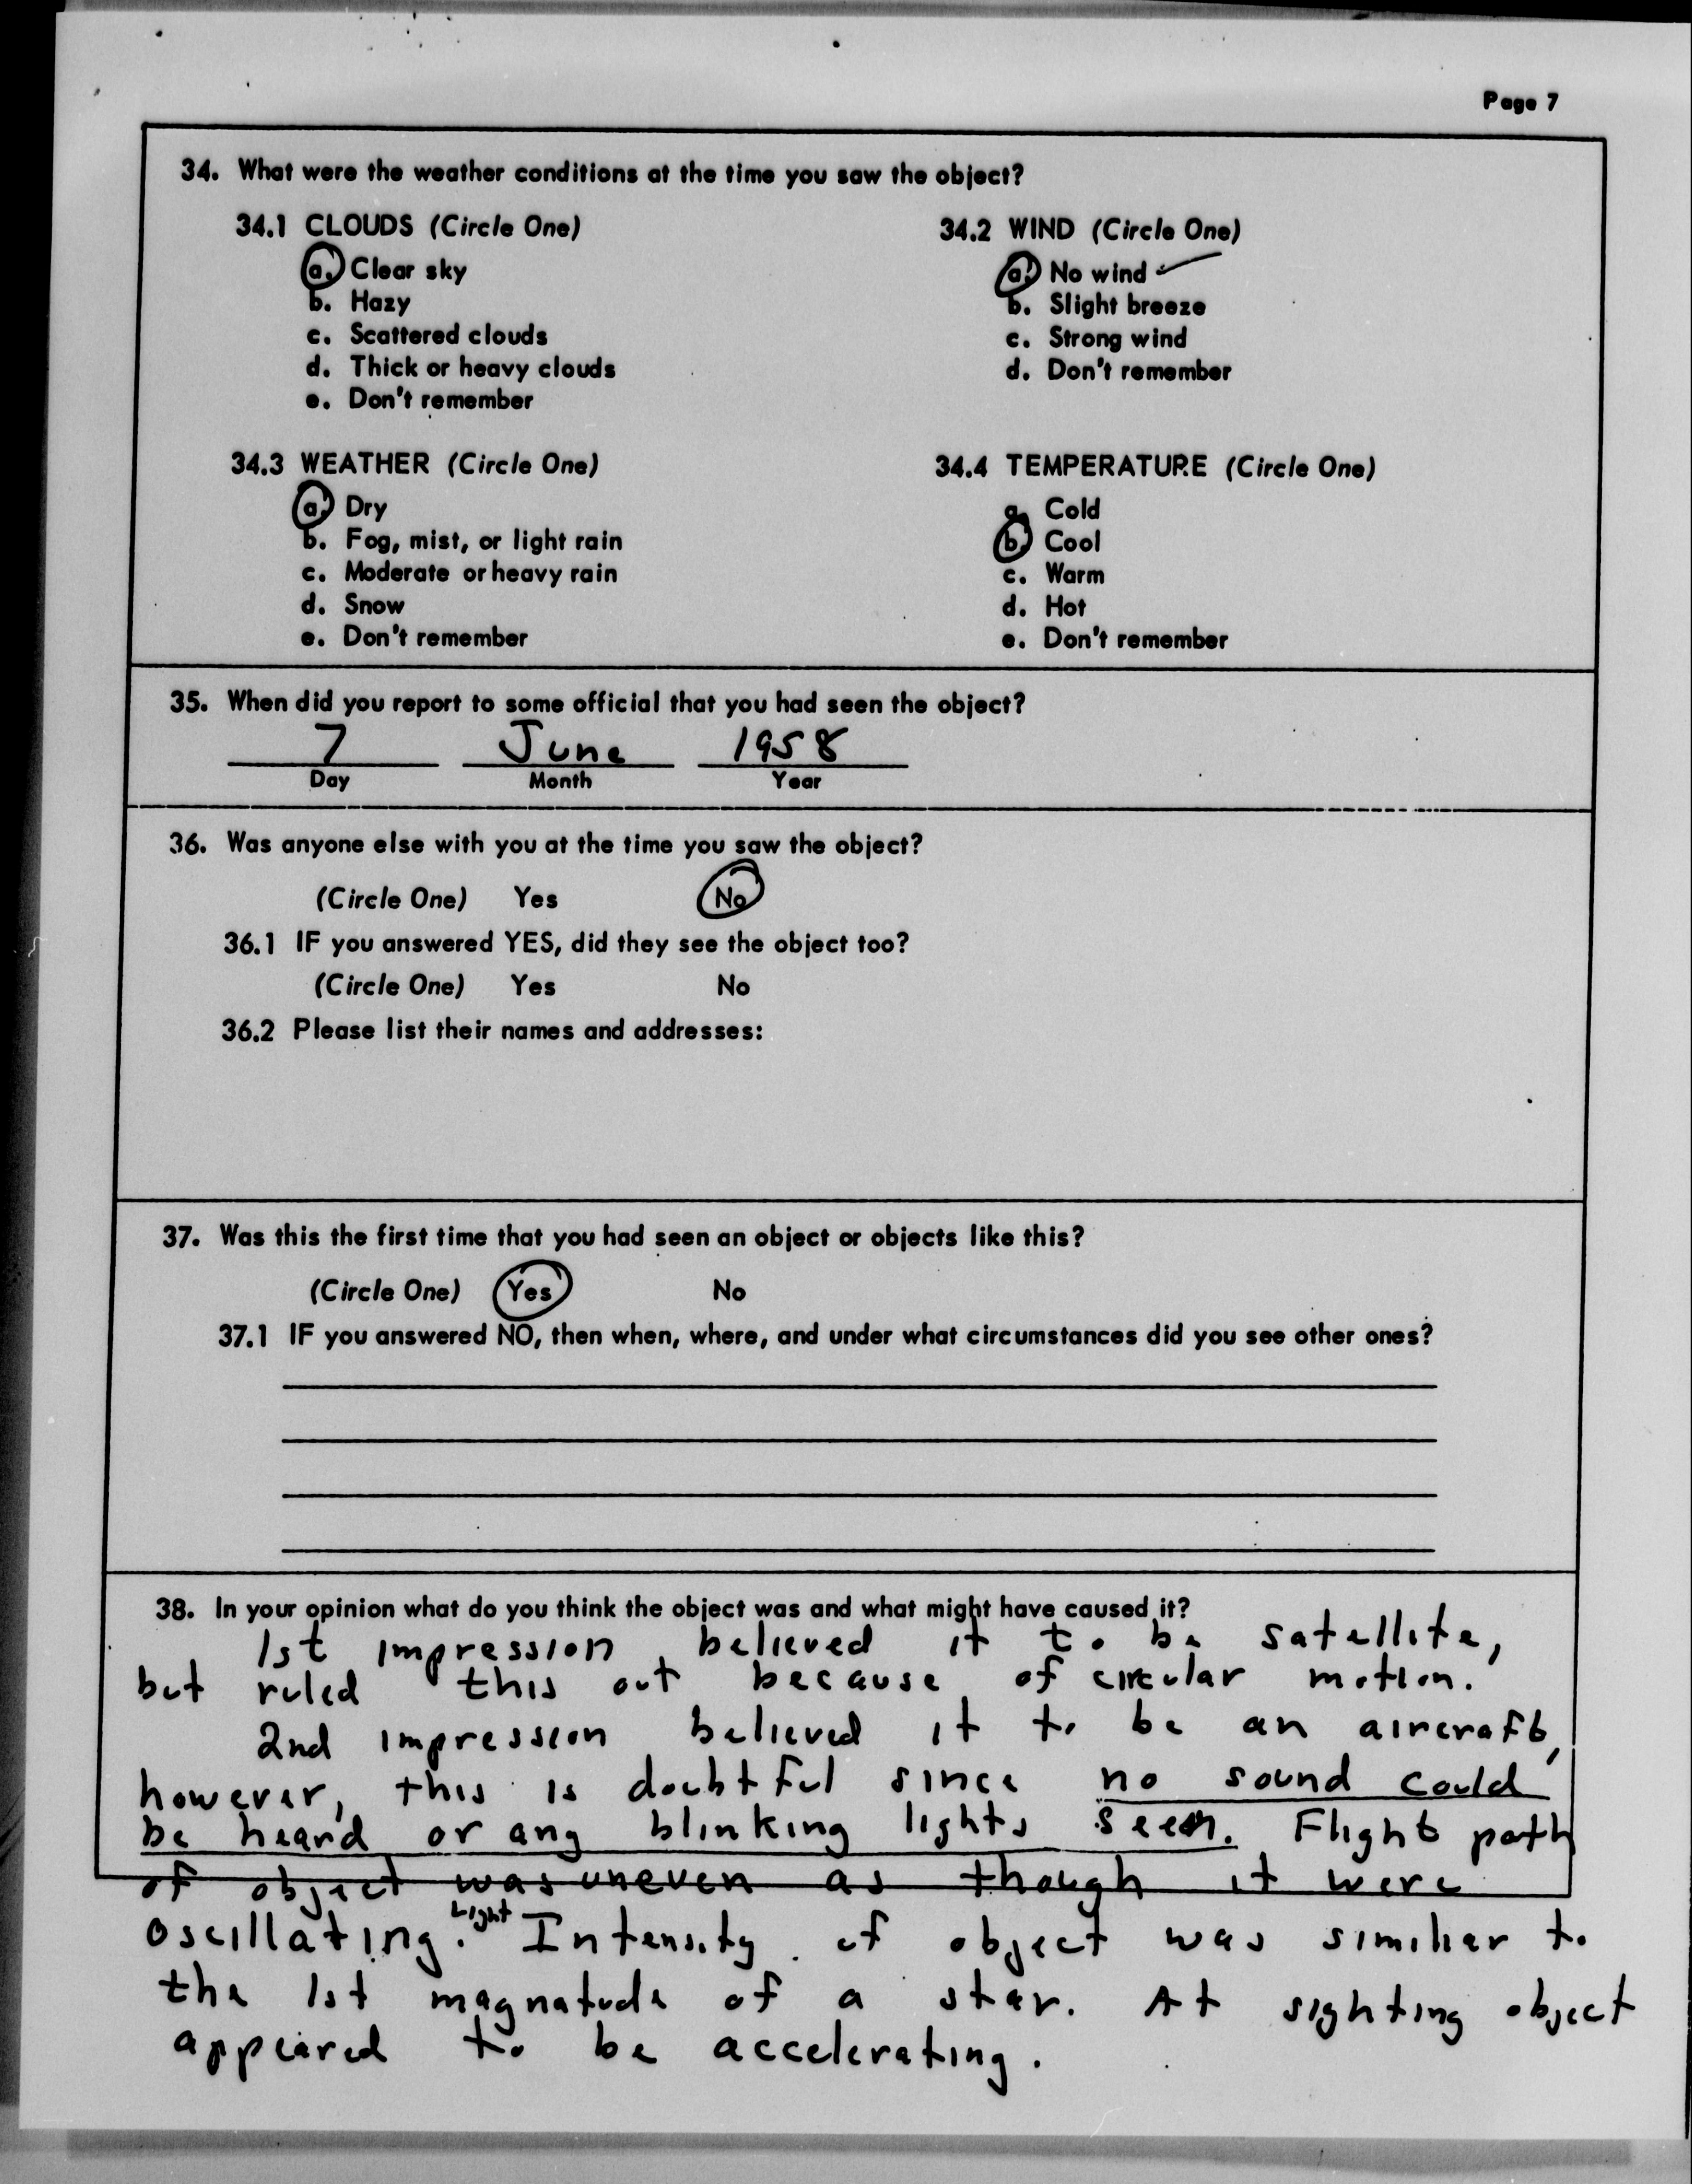 Page 7
34. What were the weather conditions at the time you saw the object?
34.1 CLOUDS (Circle One)
a. Clear sky
b. Hazy
c. Scattered clouds
d. Thick or heavy clouds
e. Don't remember
34.2 WIND (Circle One)
a. No wind ✓
b. Slight breeze
c. Strong wind
d. Don't remember
34.3 WEATHER (Circle One)
a. Dry
b. Fog, mist, or light rain
c. Moderate or heavy rain
d. Snow
e. Don't remember
34.4 TEMPERATURE (Circle One)
a. Cold
b. Cool
c. Warm
d. Hot
e. Don't remember
35. When did you report to some official that you had seen the object?
7 June 1958
Day Month Year
36. Was anyone else with you at the time you saw the object?
(Circle One) Yes No
36.1 IF you answered YES, did they see the object too?
(Circle One) Yes No
36.2 Please list their names and addresses:
37. Was this the first time that you had seen an object or objects like this?
(Circle One) Yes No
37.1 IF you answered NO, then when, where, and under what circumstances did you see other ones?
38. In your opinion what do you think the object was and what might have caused it?
1st impression, believed it to be satellite,
but ruled this out because of circular motion.
2nd impression believed it to be an aircraft,
however, this is doubtful since no sound could
be heard or any blinking lights seen. Flight path
of object was uneven as though it were
oscillating. Light Intensity of object was similiar to
the 1st magnatude of a star. At sighting object
appeared to be accelerating.